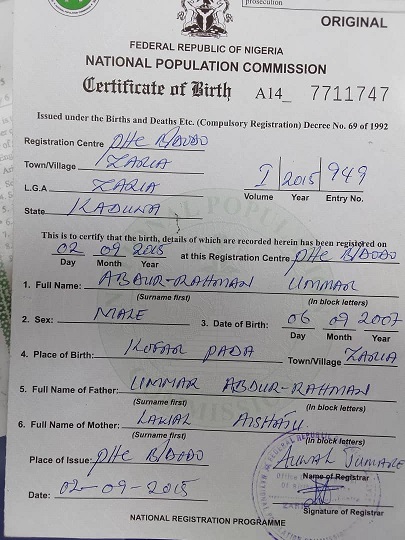 prosecution
ORIGINAL
FEDERAL REPUBLIC OF NIGERIA
NATIONAL POPULATION COMMISSION
Certificate of Birth A14_ 7711747
Issued under the Births and Deaths Etc. (Compulsory Registration) Decree No. 69 of 1992
Registration Centre PHC B/DODO
Town/Village ZARIA
L.G.A ZARIA
I 2015 949
Volume Year Entry No.
State KADUNA
This is to certify that the birth, details of which are recorded herein has been registered on
02 09 2015 at this Registration Centre PHC B/DODO
Day Month Year
1. Full Name: ABDUR-RAHMAN UMMAR
(Surname first) (In block letters)
2. Sex: MALE 3. Date of Birth: 06 09 2007
Day Month Year
4. Place of Birth: KOFAR DADA Town/Village ZARIA
5. Full Name of Father: UMMAR ABDUR-RAHMAN
(Surname first) (In block letters)
6. Full Name of Mother: AISHATU
(Surname first) (In block letters)
Place of Issue: PHC B/DODO
Name of Registrar
Date: 02-09-2015
Signature of Registrar
NATIONAL REGISTRATION PROGRAMME